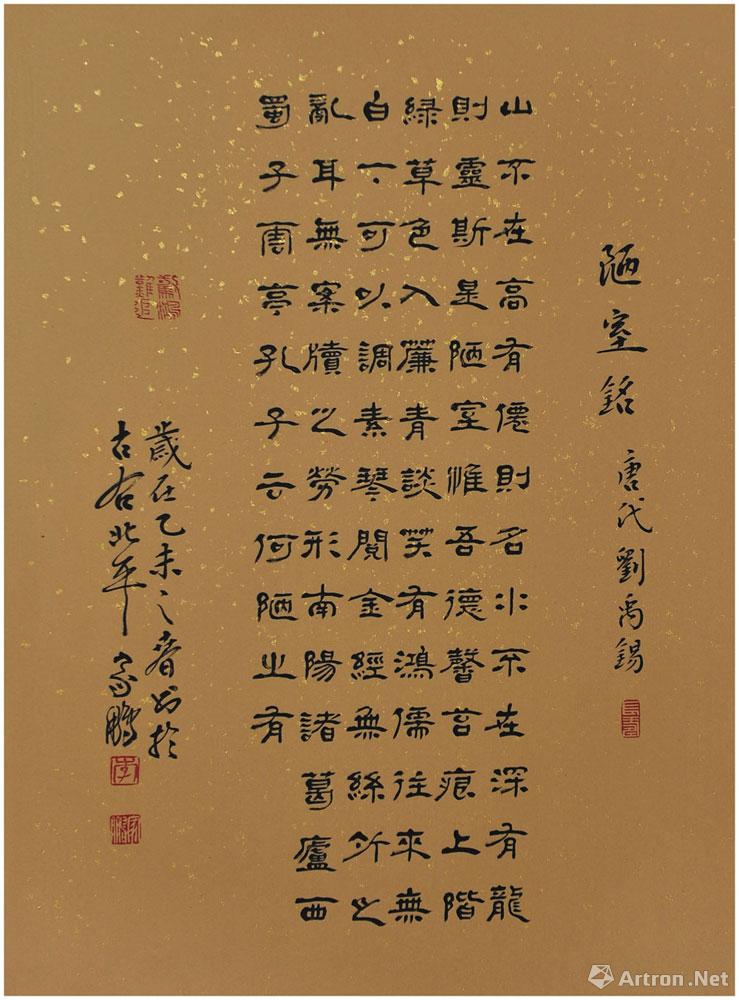 陋室銘 唐代劉禹錫
山不在高有僊則名水不在深有龍
則靈斯是陋室惟吾德馨苔痕上階
綠草色入簾青談笑有鴻儒往來無
白丁可以調素琴閱金經無絲竹之
亂耳無案牘之勞形南陽諸葛廬西
蜀子雲亭孔子云何陋之有
驚鴻難追
歲在乙未之春書於
古右北平家鵬
李
Artron.Net